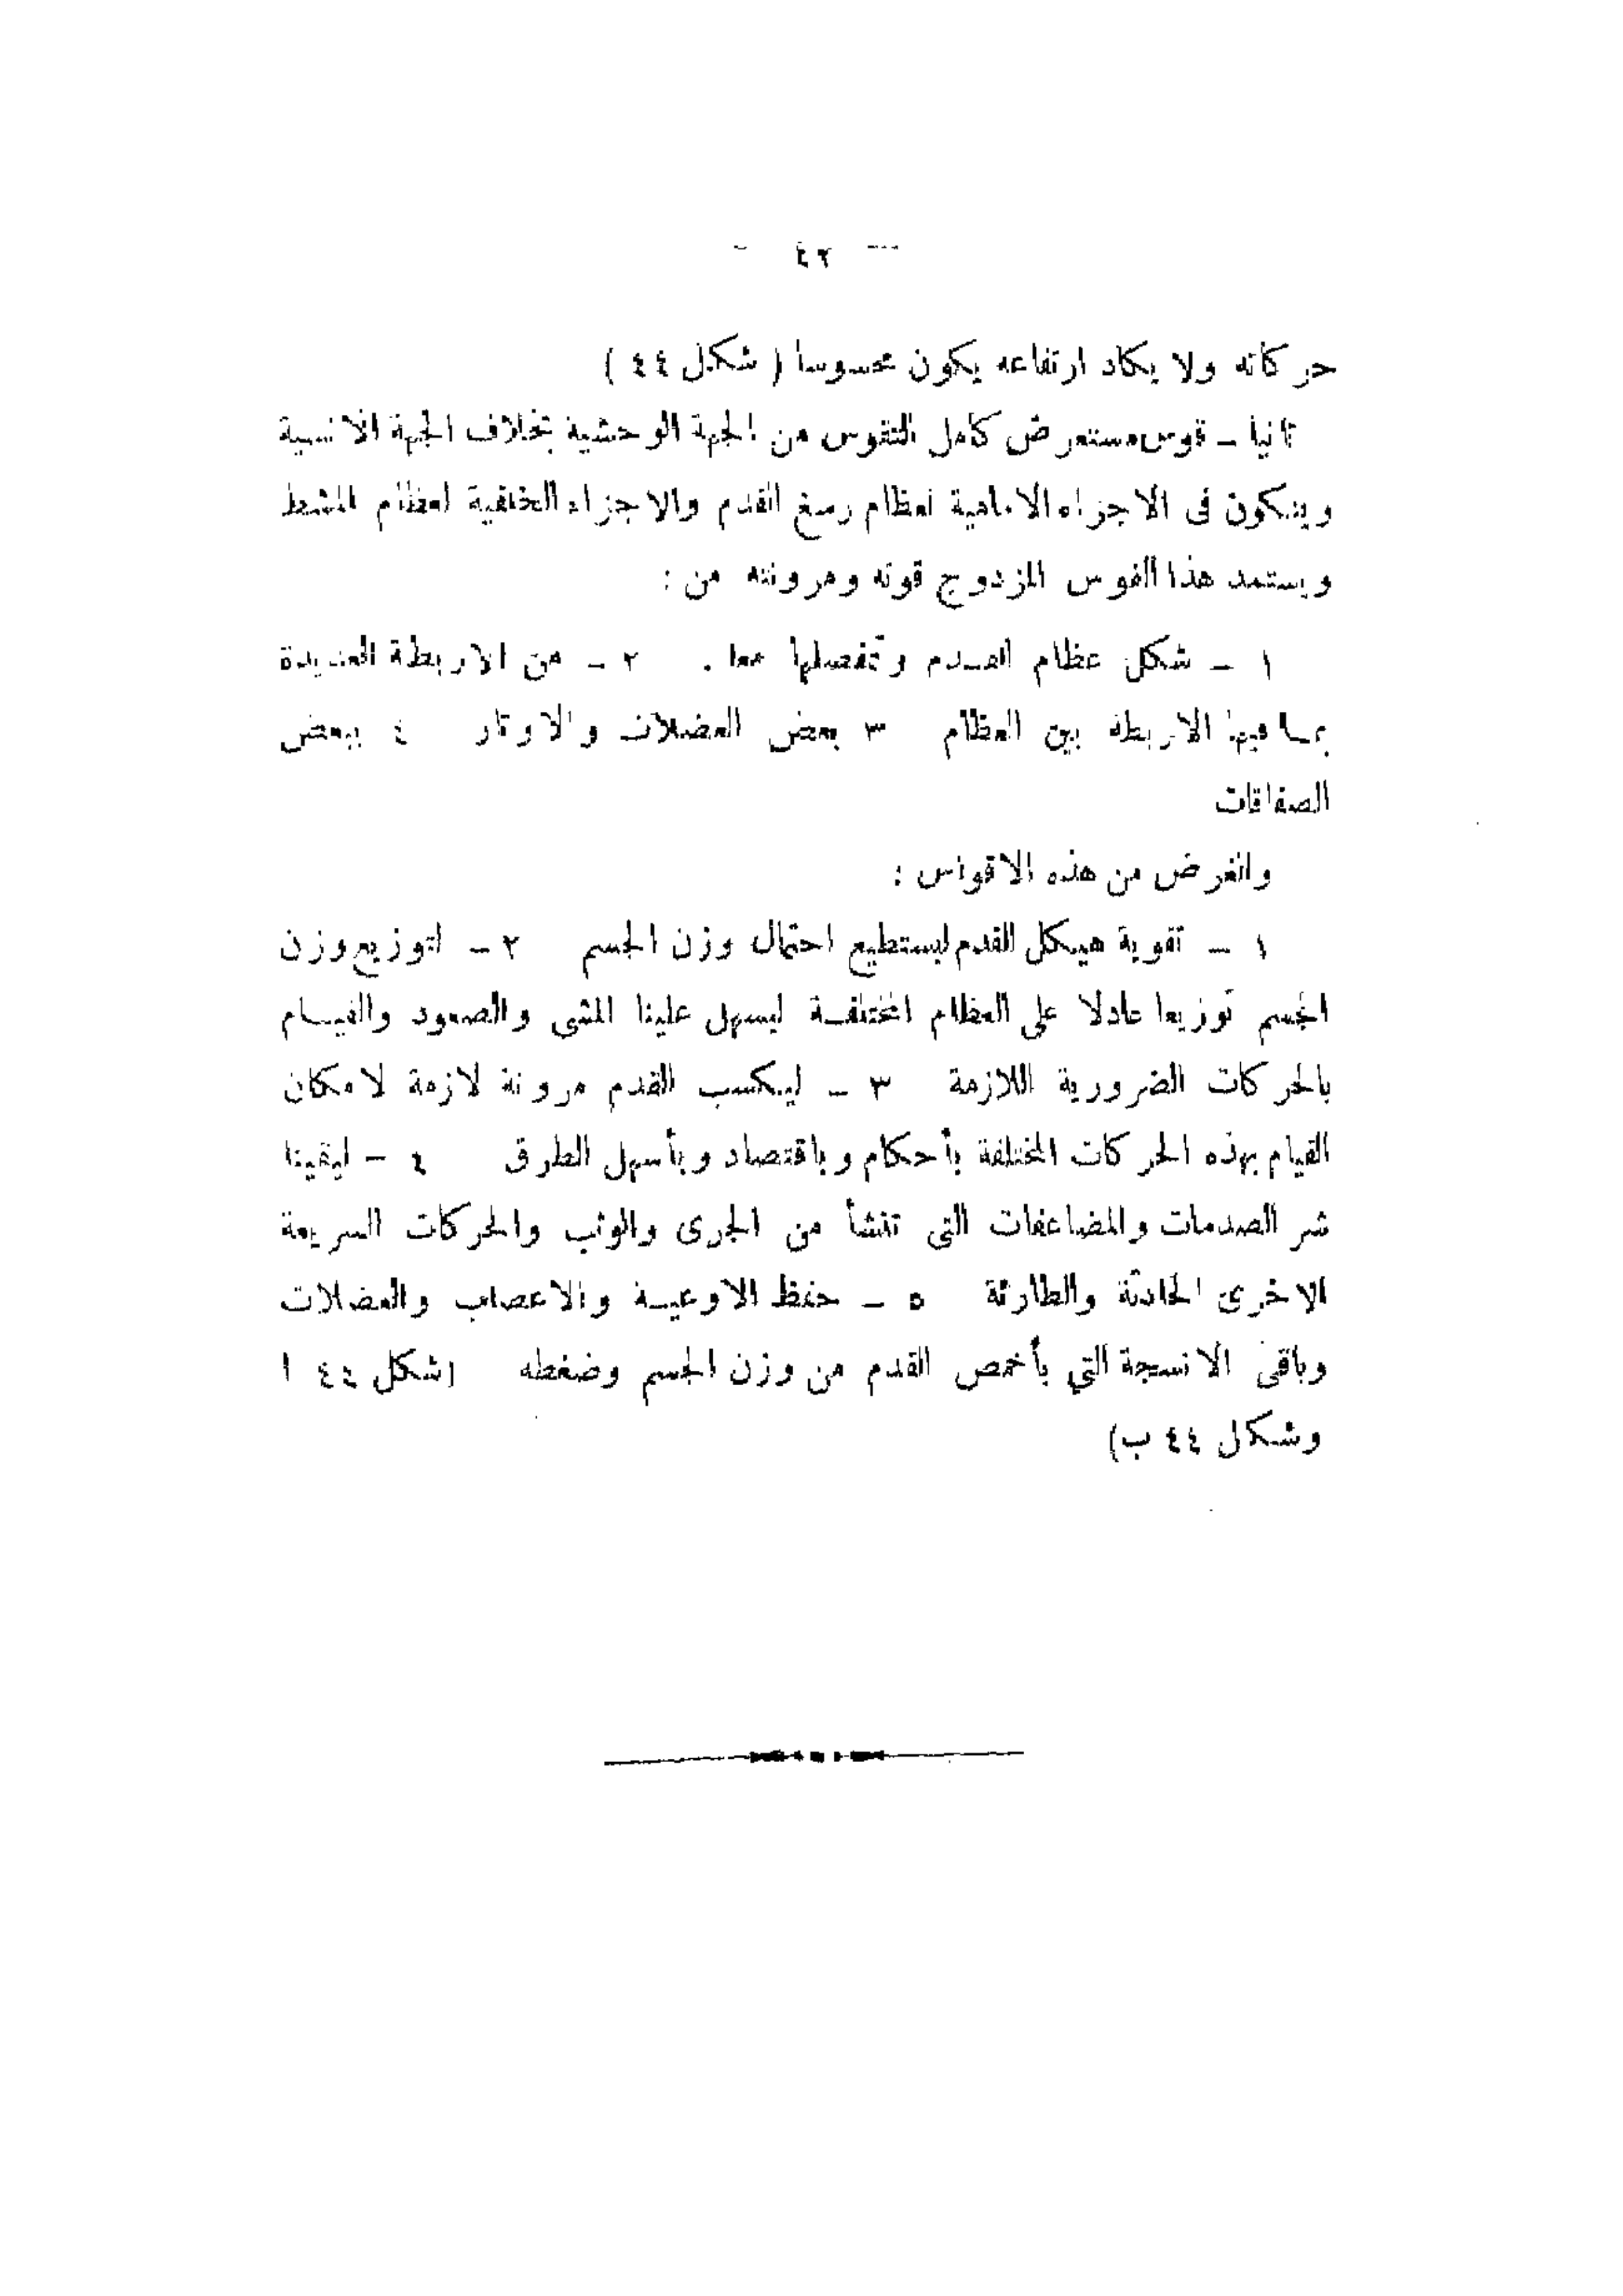 — ٤٢ —
حركاته ولا يكاد ارتفاعه يكون محسوسا ( شكل ٤٤ )
ثانيا – قوس مستعرض كامل التقوس من الجهة الوحشية بخلاف الجهة الانسية
ويتكون فى الاجزاء الامامية لعظام رسغ القدم والاجزاء الخلفية لعظام المشط
ويستمد هذا القوس المزدوج قوته ومرونته من :
١ – شكل عظام القدم وتمفصلها معا . ٢ – من الاربطة العديدة
بما فيها الاربطة بين العظام ٣ بعض العضلات والاوتار ٤ ببعض
الصفاقات
والغرض من هذه الاقواس :
١ – تقوية هيكل القدم ليستطيع احتمال وزن الجسم ٢ – لتوزيع وزن
الجسم توزيعا عادلا على العظام المختلفة ليسهل علينا المشى والصعود والقيام
بالحركات الضرورية اللازمة ٣ – ليكسب القدم مرونة لازمة لامكان
القيام بهذه الحركات المختلفة بأحكام وباقتصاد وبأسهل الطرق ٤ – ليقينا
شر الصدمات والمضاعفات التى تنشأ من الجرى والوثب والحركات السريعة
الاخرى الحادثة والطارئة ٥ – حفظ الاوعية والاعصاب والعضلات
وباقى الانسجة التي بأخمص القدم من وزن الجسم وضغطه (شكل ٤٤ ا
وشكل ٤٤ ب)